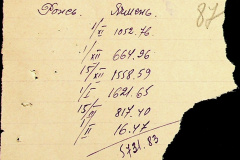 87
Рожь. Ячмень.
1/XI 1052.76
1/XII 664.96
15/XII 1558.59
1/I 1621.65
817.40
1/II 16.47
5731.83